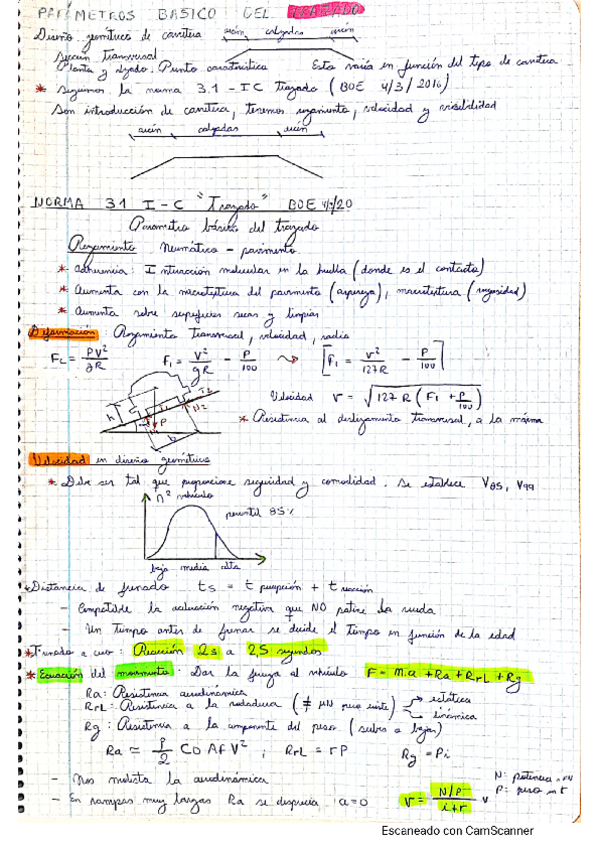 PARÁMETROS BÁSICO DEL TRAZADO
Diseño geométrico de carretera arcén calzadas arcén
Sección transversal
Planta y alzado. Punto característica Esto varía en función del tipo de carretera
* Seguimos la norma 3.1-IC Trazado (BOE 4/3/2016)
Son introducción de carretera, tenemos rozamiento, velocidad y visibilidad
arcén calzadas arcén
NORMA 3.1 I-C "Trazado" BOE 4/3/20
Parametro básico del trazado
Rozamiento Neumático - pavimento.
* Adherencia: Interacción molecular en la huella (donde es el contacto)
* Aumenta con la microtextura del pavimento (aspereza), macrotextura (rugosidad)
* Aumenta sobre superficies secas y limpias
Deformación: Rozamiento transversal, velocidad, radio
FL = PV²/gR F₁ = V²/gR - P/100 ⇝ [F₁ = V²/127R - P/100]
Velocidad V = √(127 R (F₁ + P/100))
h N₂ P b
* Resistencia al deslizamiento transversal, a la máxima
Velocidad en diseño geométrico
* Debe ser tal que proporcione seguridad y comodidad. Se establece V85, V99
nº vehículo
percentil 85%
baja media alta
* Distancia de frenado ts = t percepción + t reacción
- Compatible la actuación negativa que NO patine la rueda
- Un tiempo antes de frenar se decide el tiempo en función de la edad
* Frenado a cero: Reacción 2s a 2,5 segundos
* Ecuación del movimiento: Dar la fuerza al vehículo F = m.a + Ra + RrL + Rg
Ra: Resistencia aerodinámica
RrL: Resistencia a la rodadura (≠ μN pero existe) estática
dinámica
Rg: Resistencia a la componente del peso (subes o bajas)
Ra ≃ ρ/2 CD Af V² ; RrL = rP Rg = Pi
- Nos molesta la aerodinámica
- En rampas muy largas Ra se desprecia a=0 V = N/P / i+r
N: potencia
P: peso en t
Escaneado con CamScanner